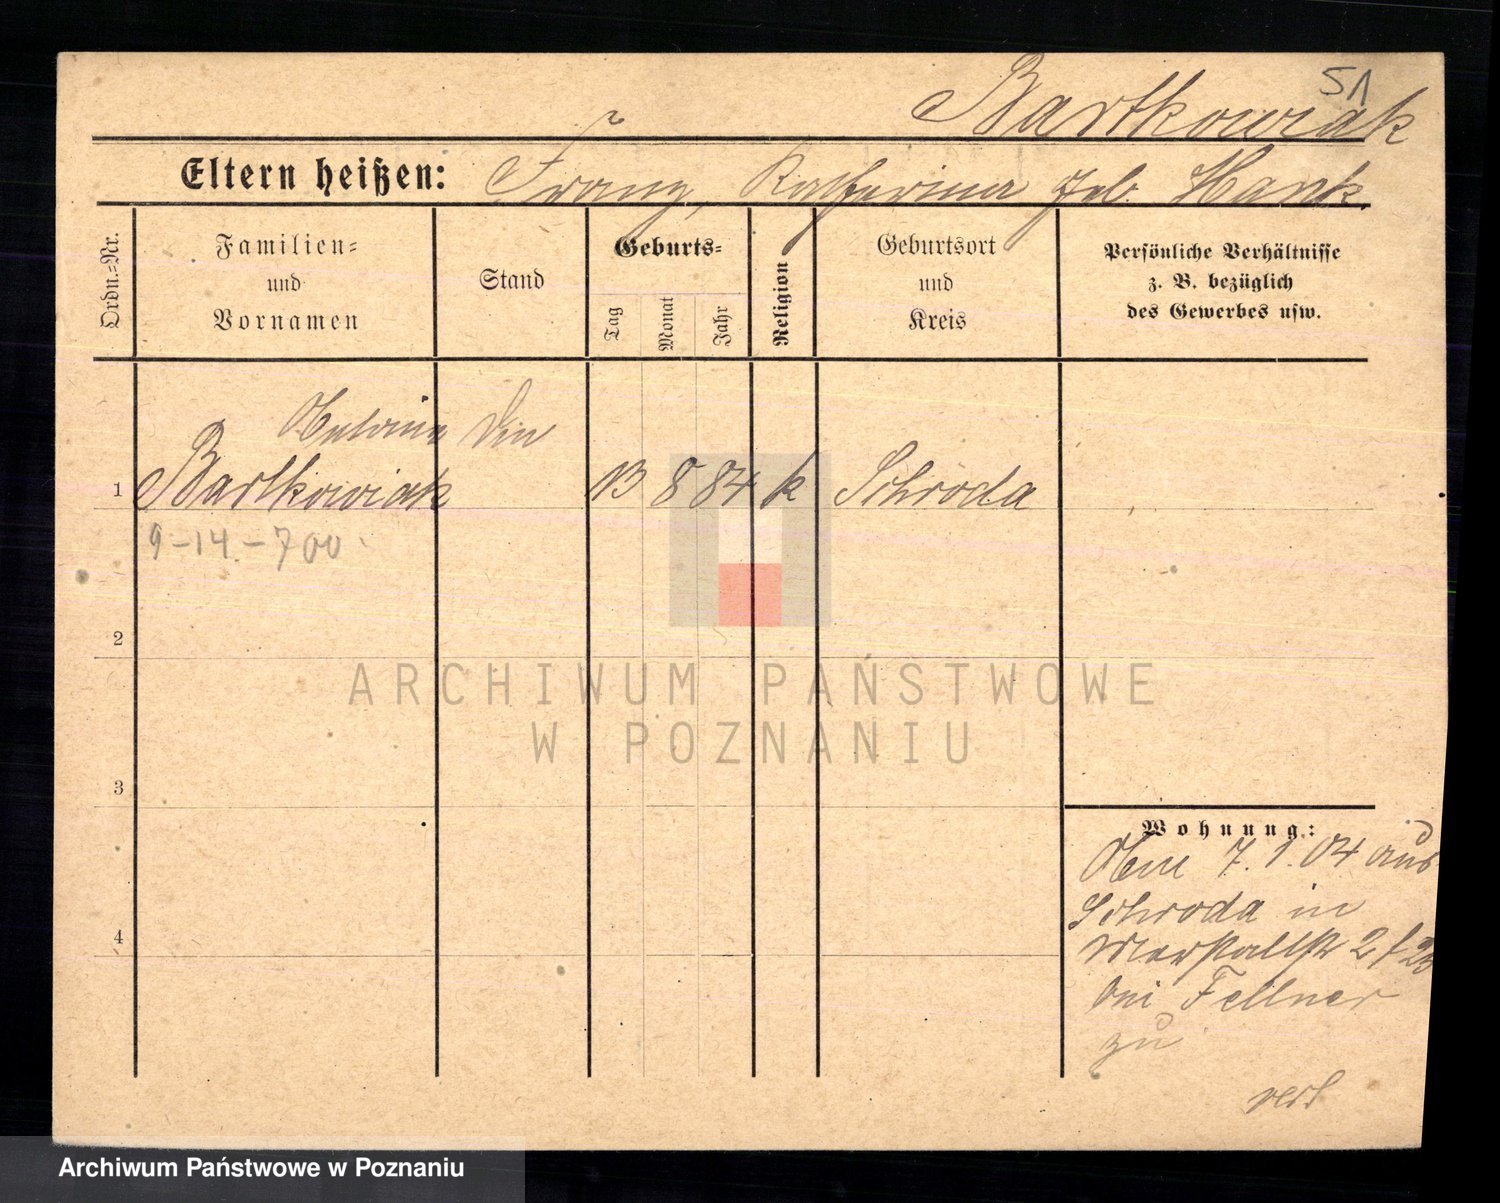 51
Bartkowiak
Eltern heißen: Franz, Katharina geb. Hank.
Ordn.=Nr.
Familien=
und
Vornamen
Stand
Geburts=
Tag
Monat
Jahr
Religion
Geburtsort
und
Kreis
Persönliche Verhältnisse
z. B. bezüglich
des Gewerbes usw.
1
Bartkowiak 13 8 84 k Schroda
9-14-700
2
ARCHIWUM PAŃSTWOWE
W POZNANIU
3
4
Wohnung:
7.1.04 aus
Schroda in
bei Fellner
zu
Archiwum Państwowe w Poznaniu